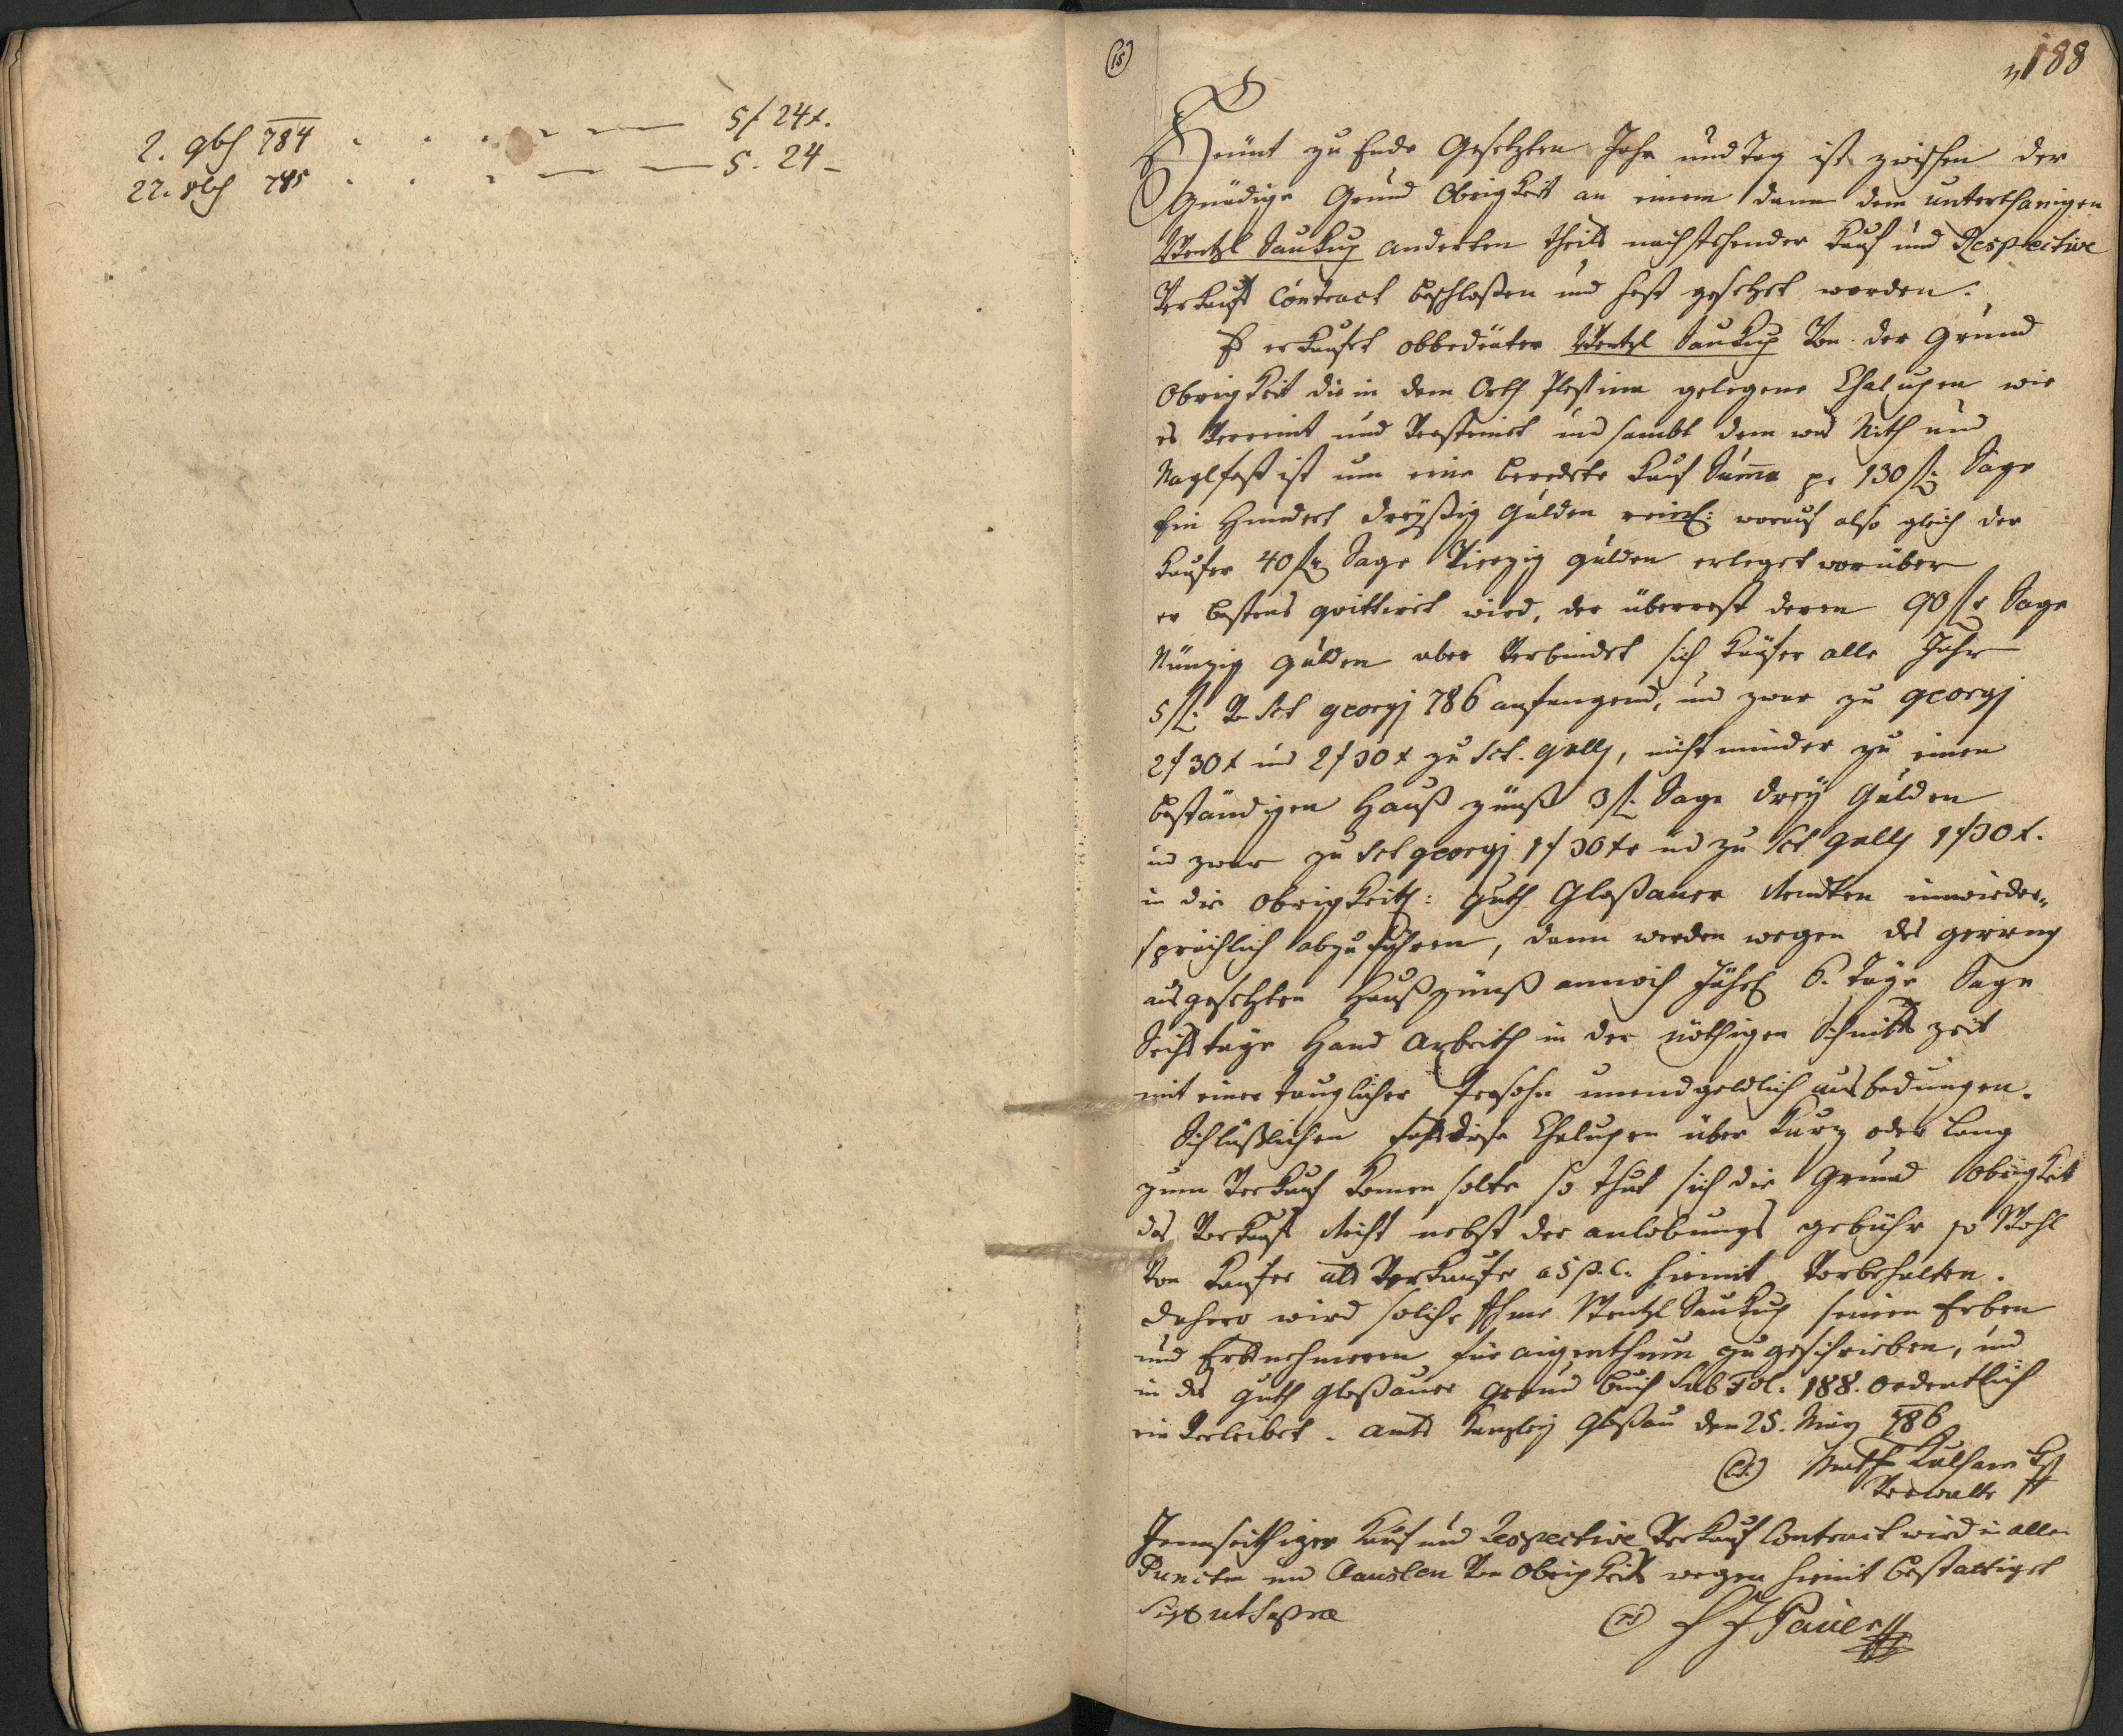 2. 9bh 784 . . . — — 5 f 24 x.
22. 8bh 785 . . — — 5. 24 –
15
188
Heünt zu Ende Gesetzten Jahr und Tag ist zwischen der
Gnädige Grund Obrigkeit an einem dann dem unterthanigen
Wentzl Saukup anderten theils nachstehender Kauf und Respective
Verkaufs Contract beschloßen und fest gesetzet worden.
Es erkaufet obbedeuter Wentzl Saukup Von der Grund
Obrigkeit die in dem Orth gelegene Chalupen wie
es Verreint und Versteinet und sambt dem was Nith und
Naglfest ist um eine beredete Kauf Suma pr 130 f. Sage
Ein Hundert dreyßig Gulden reinl: worauf also gleich der
Kaufer 40 f. Sage Vierzig gulden erleget worüber
er bestens quittiret wird, der überrest deren 90 f. Sage
Nünzig gulden aber Verbindet sich Kaufer alle Jahr
5 f. Von Sct georgj 786 anfangend, und zwar zu georgj
2 f 30 x und 2 f 30 x zu Sct. gallj, nicht minder zu einen
beständigen Hauß zünß 3 f. Sage drey Gulden
und zwar zu Sct georgj 1 f 30 xr und zu Sct gallj 1 f 30 x.
in die Obrigkeitl: guth Gloßauer Rendten unwieder„
sprächlich abzuführen, dann werden wegen des gering
ausgesetzten Haußzünß annoch Jährl 6. Täge Sage
Sechs täge Hand Arbeith in der nöthigen Schnitts zeit
mit einer tauglicher Persohn unendgeldlich ausbedungen.
Schlüßlichen falls diese Chalupen über Kurz oder Lang
zum Verkauf Komen solte so thut sich die Grund Obrigkeit
das Vorkaufs Recht nebst der anlobungs gebühr so Wohl
Von Kaufer als Verkaufer a 5 p. C. hiemit Vorbehalten.
Dahero wird solche Ihme Wentzl Saukup seinen Erben
und Erbnehmeren für aigenthum zugeschrieben, und
in das guth gloßauer grund buch Sub Fol: 188. ordentlich
ein Verleibet. Amts Kanzley Gloßau den 25. May 786
(L.S.) Math Verwalter
Jennseithiger Kauf und Respective Verkauf Contract wird in allen
Puncten und Clauslen Von Obrigkeits wegen hiemit bestattiget
Sig. ut Supra (L.S.) F J Pauer